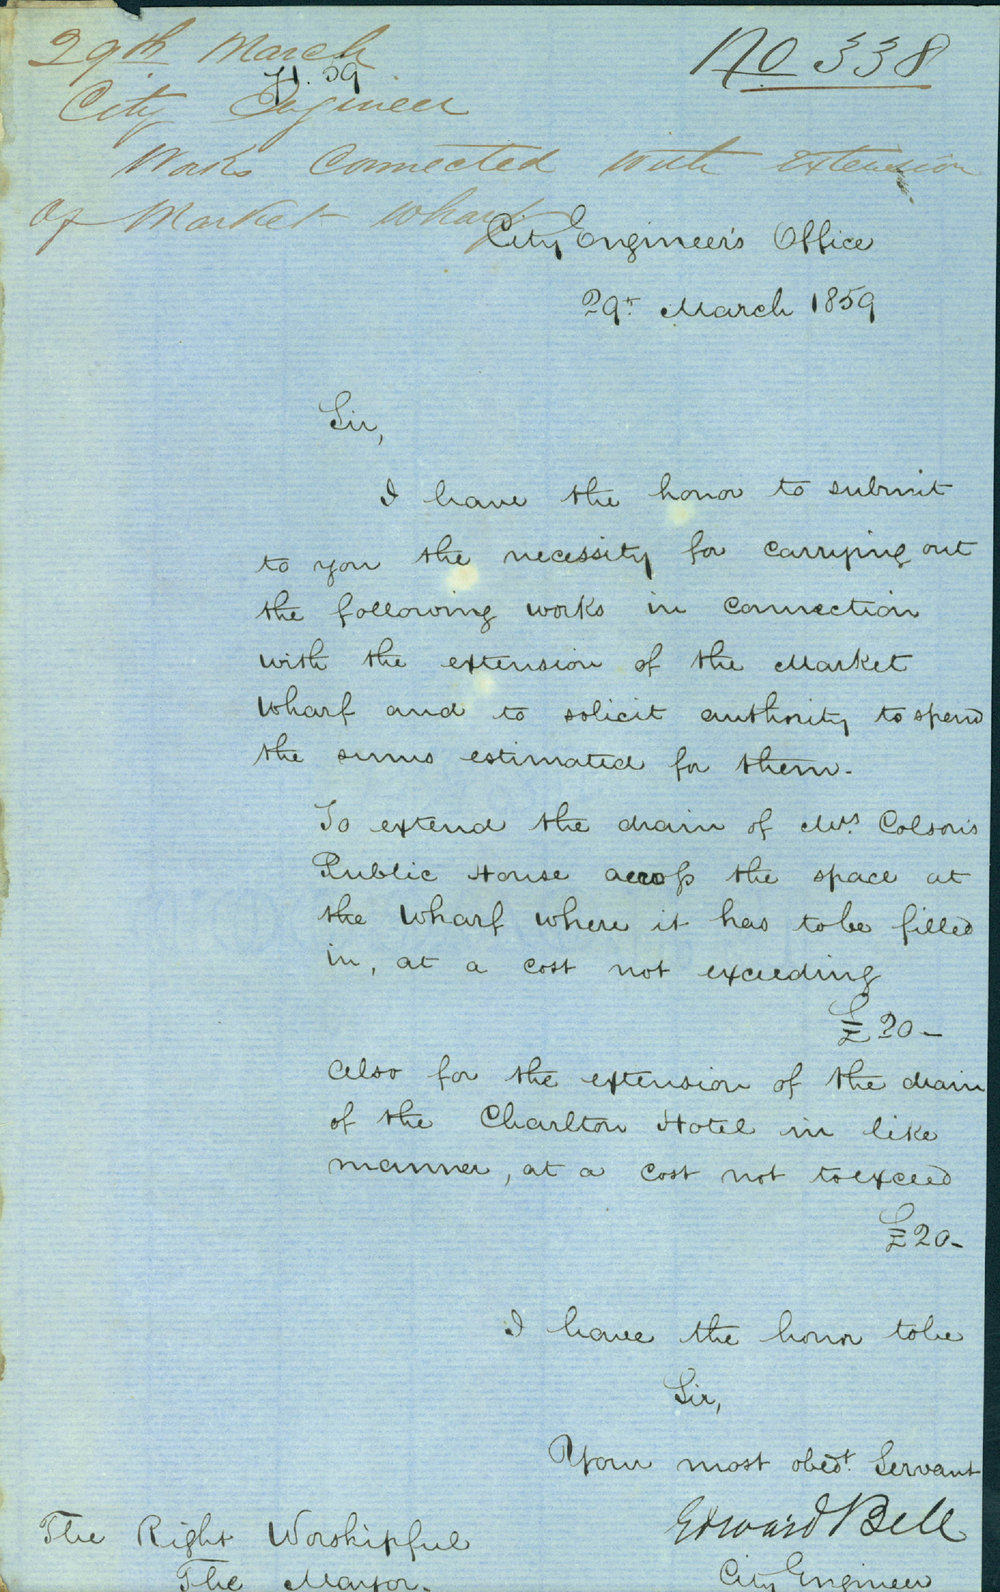 29th March
No 338
City Engineer
Works Connected with extension
of Market Wharf
City Engineer's Office
29t March 1859
Sir,
I have the honor to submit
to you the necessity for carrying out
the following works in connection
with the extension of the Market
Wharf and to solicit authority to spend
the sums estimated for them.
To extend the drain of Mrs Colson's
Public House across the space at
the Wharf where it has to be filled
in, at a cost not exceeding
£20-
Also for the extension of the drain
of the Charlton Hotel in like
manner, at a cost not to exceed
£20-
I have the honor to be
Sir,
Your most obedt. Servant
Edward Bell
City Engineer
The Right Worshipful
The Mayor.